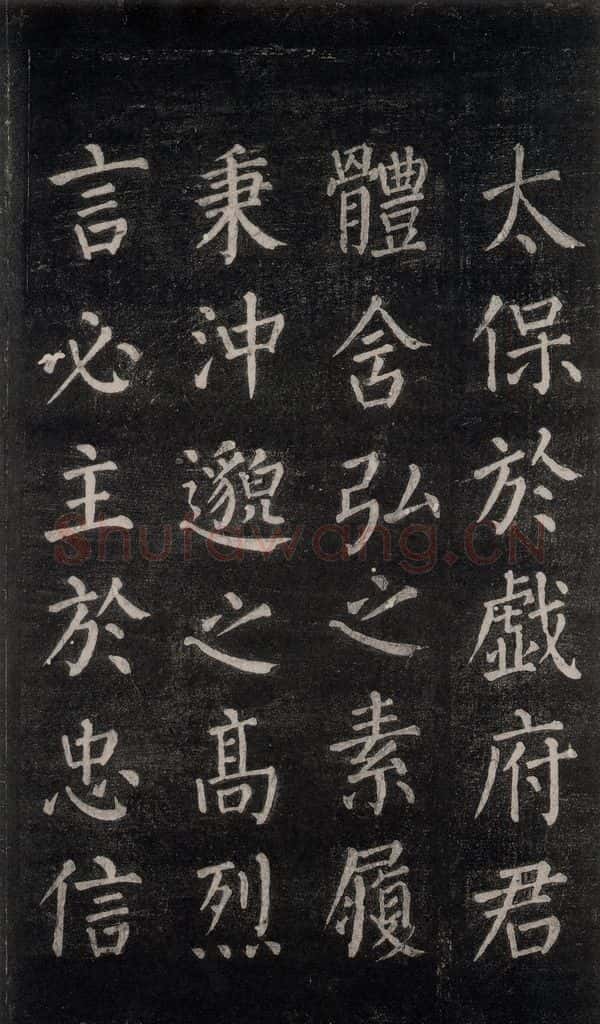 太保於戯府君
體含弘之素履
秉沖邈之髙烈
言必主於忠信
Shufawang.CN